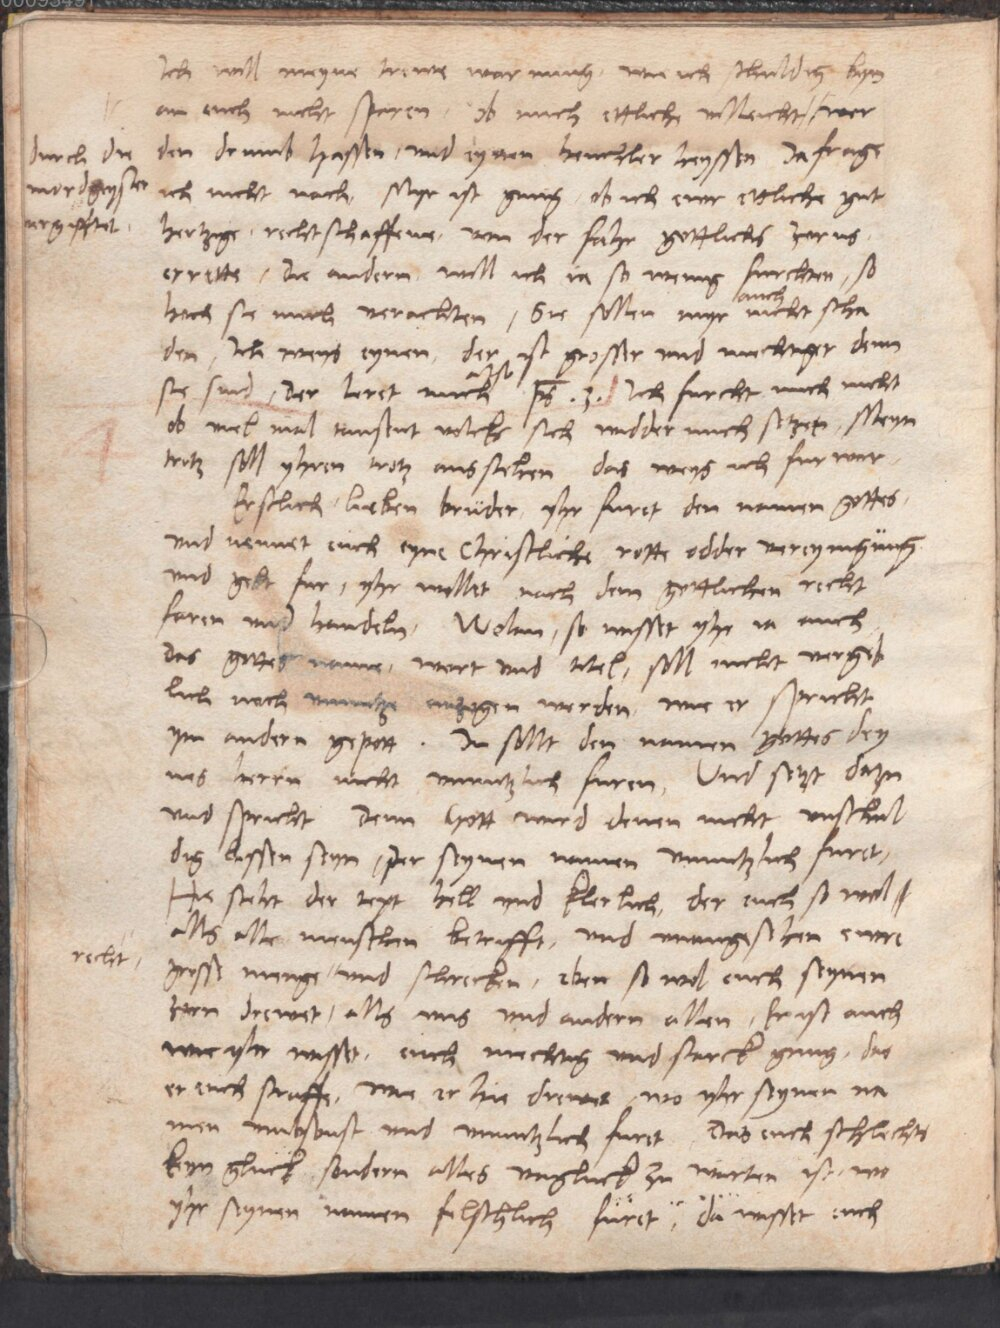 Ich will meyne trewe warnung, wie ich schuldig byn
an euch nicht sparen, ob mich ettliche villeicht (wer
durch die
mordgeyster
vergifftet.
den drumb hassen, und eynen heuchler heyssen Da frage
ich nicht nach, Myr ist gnug, ob ich ewr ettliche gut
hertzige, rechtschaffene, von der fahr gottlichs zorns
errette, Die andern will ich ia so wenig furchten, so
hoch sie mich verachten, Sie sollen myr auch nicht scha
den, Ich weys eynen, der ist grosser und mechtiger denn
sie sind, Der leret mich also ps. 3. Ich furcht mich nicht
ob viel mal tausent volcks sich widder mich setzen, Meyn
trotz soll yhren trotz ausstehen das weys ich fur war
Erstlich, lieben brüder, yhr furet den namen gottes,
und nennet euch eyne Christliche rotte odder vereynigung
und gebt fur, yhr wollet nach dem gottlichen recht
faren und handeln, Wolan, so wisset yhr ia auch
das gottes name, wort und titel, soll nicht vergeb
lich noch unnutze anzogen werden, wie er spricht
ym andern gepott. Du sollt den namen gottes dey
nes herrn nicht unnutzlich furen, Und setzt dazu
und spricht Denn Gott wird denen nicht unschul
dig lassen seyn, Der seynen namen unnutzlich furet,
Hie steht der text hell und klerlich, der euch so wol
alls alle menschen betrifft, und unangesehen ewre
recht,
grosse menge und schrecken, eben so wol euch seynen
zorn drewet, alls uns und andern allen, Er ist auch
wie yhr wisset, euch mechtig und starck gnug, das
er euch straffe, wie er hie drewet, wo yhr seynen na
men umbsonst und unnutzlich furet Das euch schlechts
keyn glück sondern alles unglück zu warten ist, wo
yhr seynen namen felschlich füret, da wisset euch